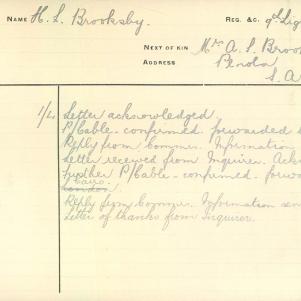 NAME H. L. Brooksby. REG. &C. 9th Lig
NEXT OF KIN Mrs A. S. Broo
ADDRESS Penola
S. A
1/2 Letter acknowledged
P/Cable - confirmed. forwarded
Reply from Commr. Information
Letter received from Inquirer. Ackn
Further P/Cable - confirmed - forwa
Cairo.
London
Reply from Commr. Information sen
Letter of thanks from Inquirer.